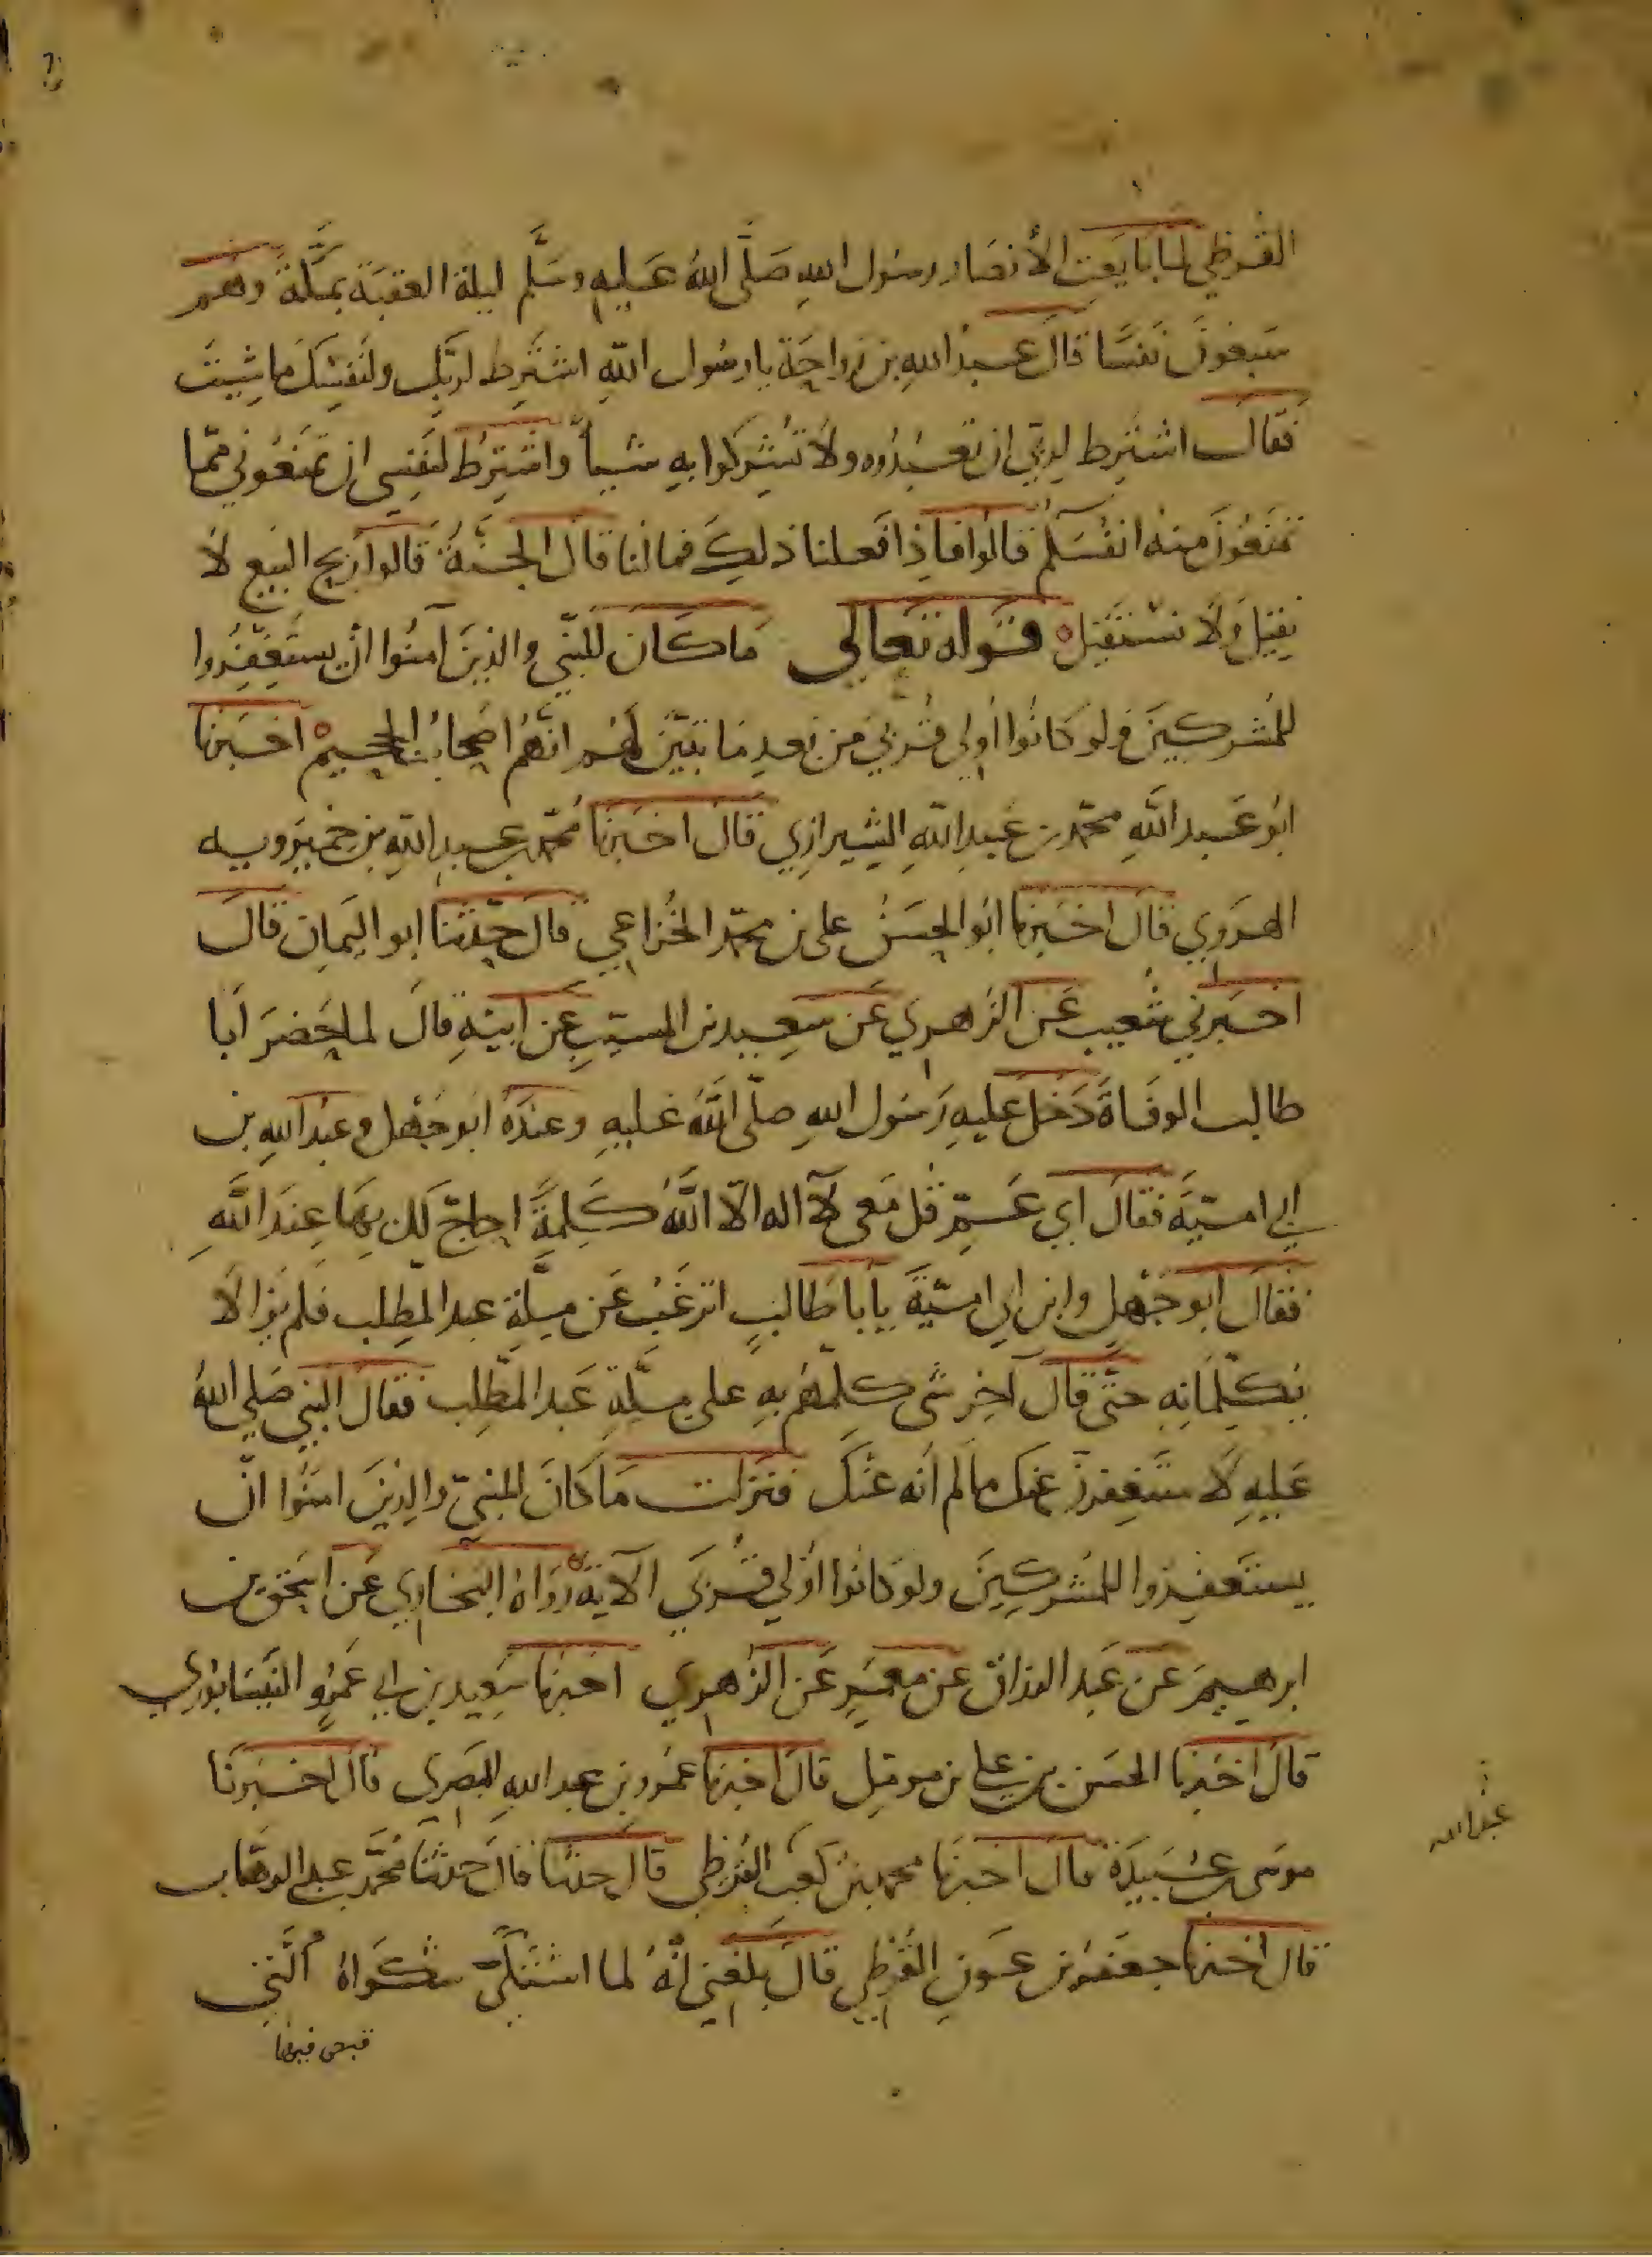 القرظي لما بايعت الأنصار رسول الله صلى الله عليه وسلم ليلة العقبة بمكة وهم
سبعون نفسا قال عبد الله بن رواحة يا رسول الله اشترط لربك ولنفسك ما شيت
فقال اشترط لربي ان تعبدوه ولا تشركوا به شيأ واشترط لنفسي ان تمنعوني مما
تمنعون منه انفسكم قالوا فاذا فعلنا ذلك فما لنا قال الجنة قالوا ربح البيع لا
نقيل ولا نستقيل قوله تعالى ما كان للنبي والذين آمنوا ان يستغفروا
للمشركين ولو كانوا أولي قربي من بعد ما تبين لهم انهم اصحاب الجحيم اخبرنا
ابو عبد الله محمد بن عبد الله الشيرازي قال اخبرنا محمد بن عبد الله بن خميرويه
الهروي قال اخبرنا ابو الحسن علي بن محمد الخزاعي قال حدثنا ابو اليمان قال
اخبرني شعيب عن الزهري عن سعيد بن المسيب عن ابيه قال لما حضر أبا
طالب الوفاة دخل عليه رسول الله صلى الله عليه وعنده ابو جهل وعبد الله بن
ابي امية فقال اي عم قل معي لآ اله الا الله كلمة احاج لك بها عند الله
فقال ابو جهل وابن ابي امية يابا طالب اترغب عن ملة عبد المطلب فلم يزالا
يكلمانه حتى قال آخر شى كلمهم به على ملة عبد المطلب فقال النبي صلي الله
عليه لا ستغفرن عنك ما لم أنه عنك فنزلت ما كان للنبي والذين امنوا ان
يستغفروا للمشركين ولو كانوا اولي قربي الآية رواه البخاري عن اسحق بن
ابرهيم عن عبد الرزاق عن معمر عن الزهري اخبرنا سعيد بن ابي عمرو النيسابوري
قال اخبرنا الحسن بن علي بن مومل قال اخبرنا عمرو بن عبد الله البصري قال اخبرنا
موسى بن عبيدة قال اخبرنا محمد بن كعب القرظي قال حدثنا قال حدثنا محمد بن عبد الوهاب
قال اخبرنا جعفر بن عون القرظي قال بلغني انه لما اشتكي شكواه التي
قبض فيها
عبد الله